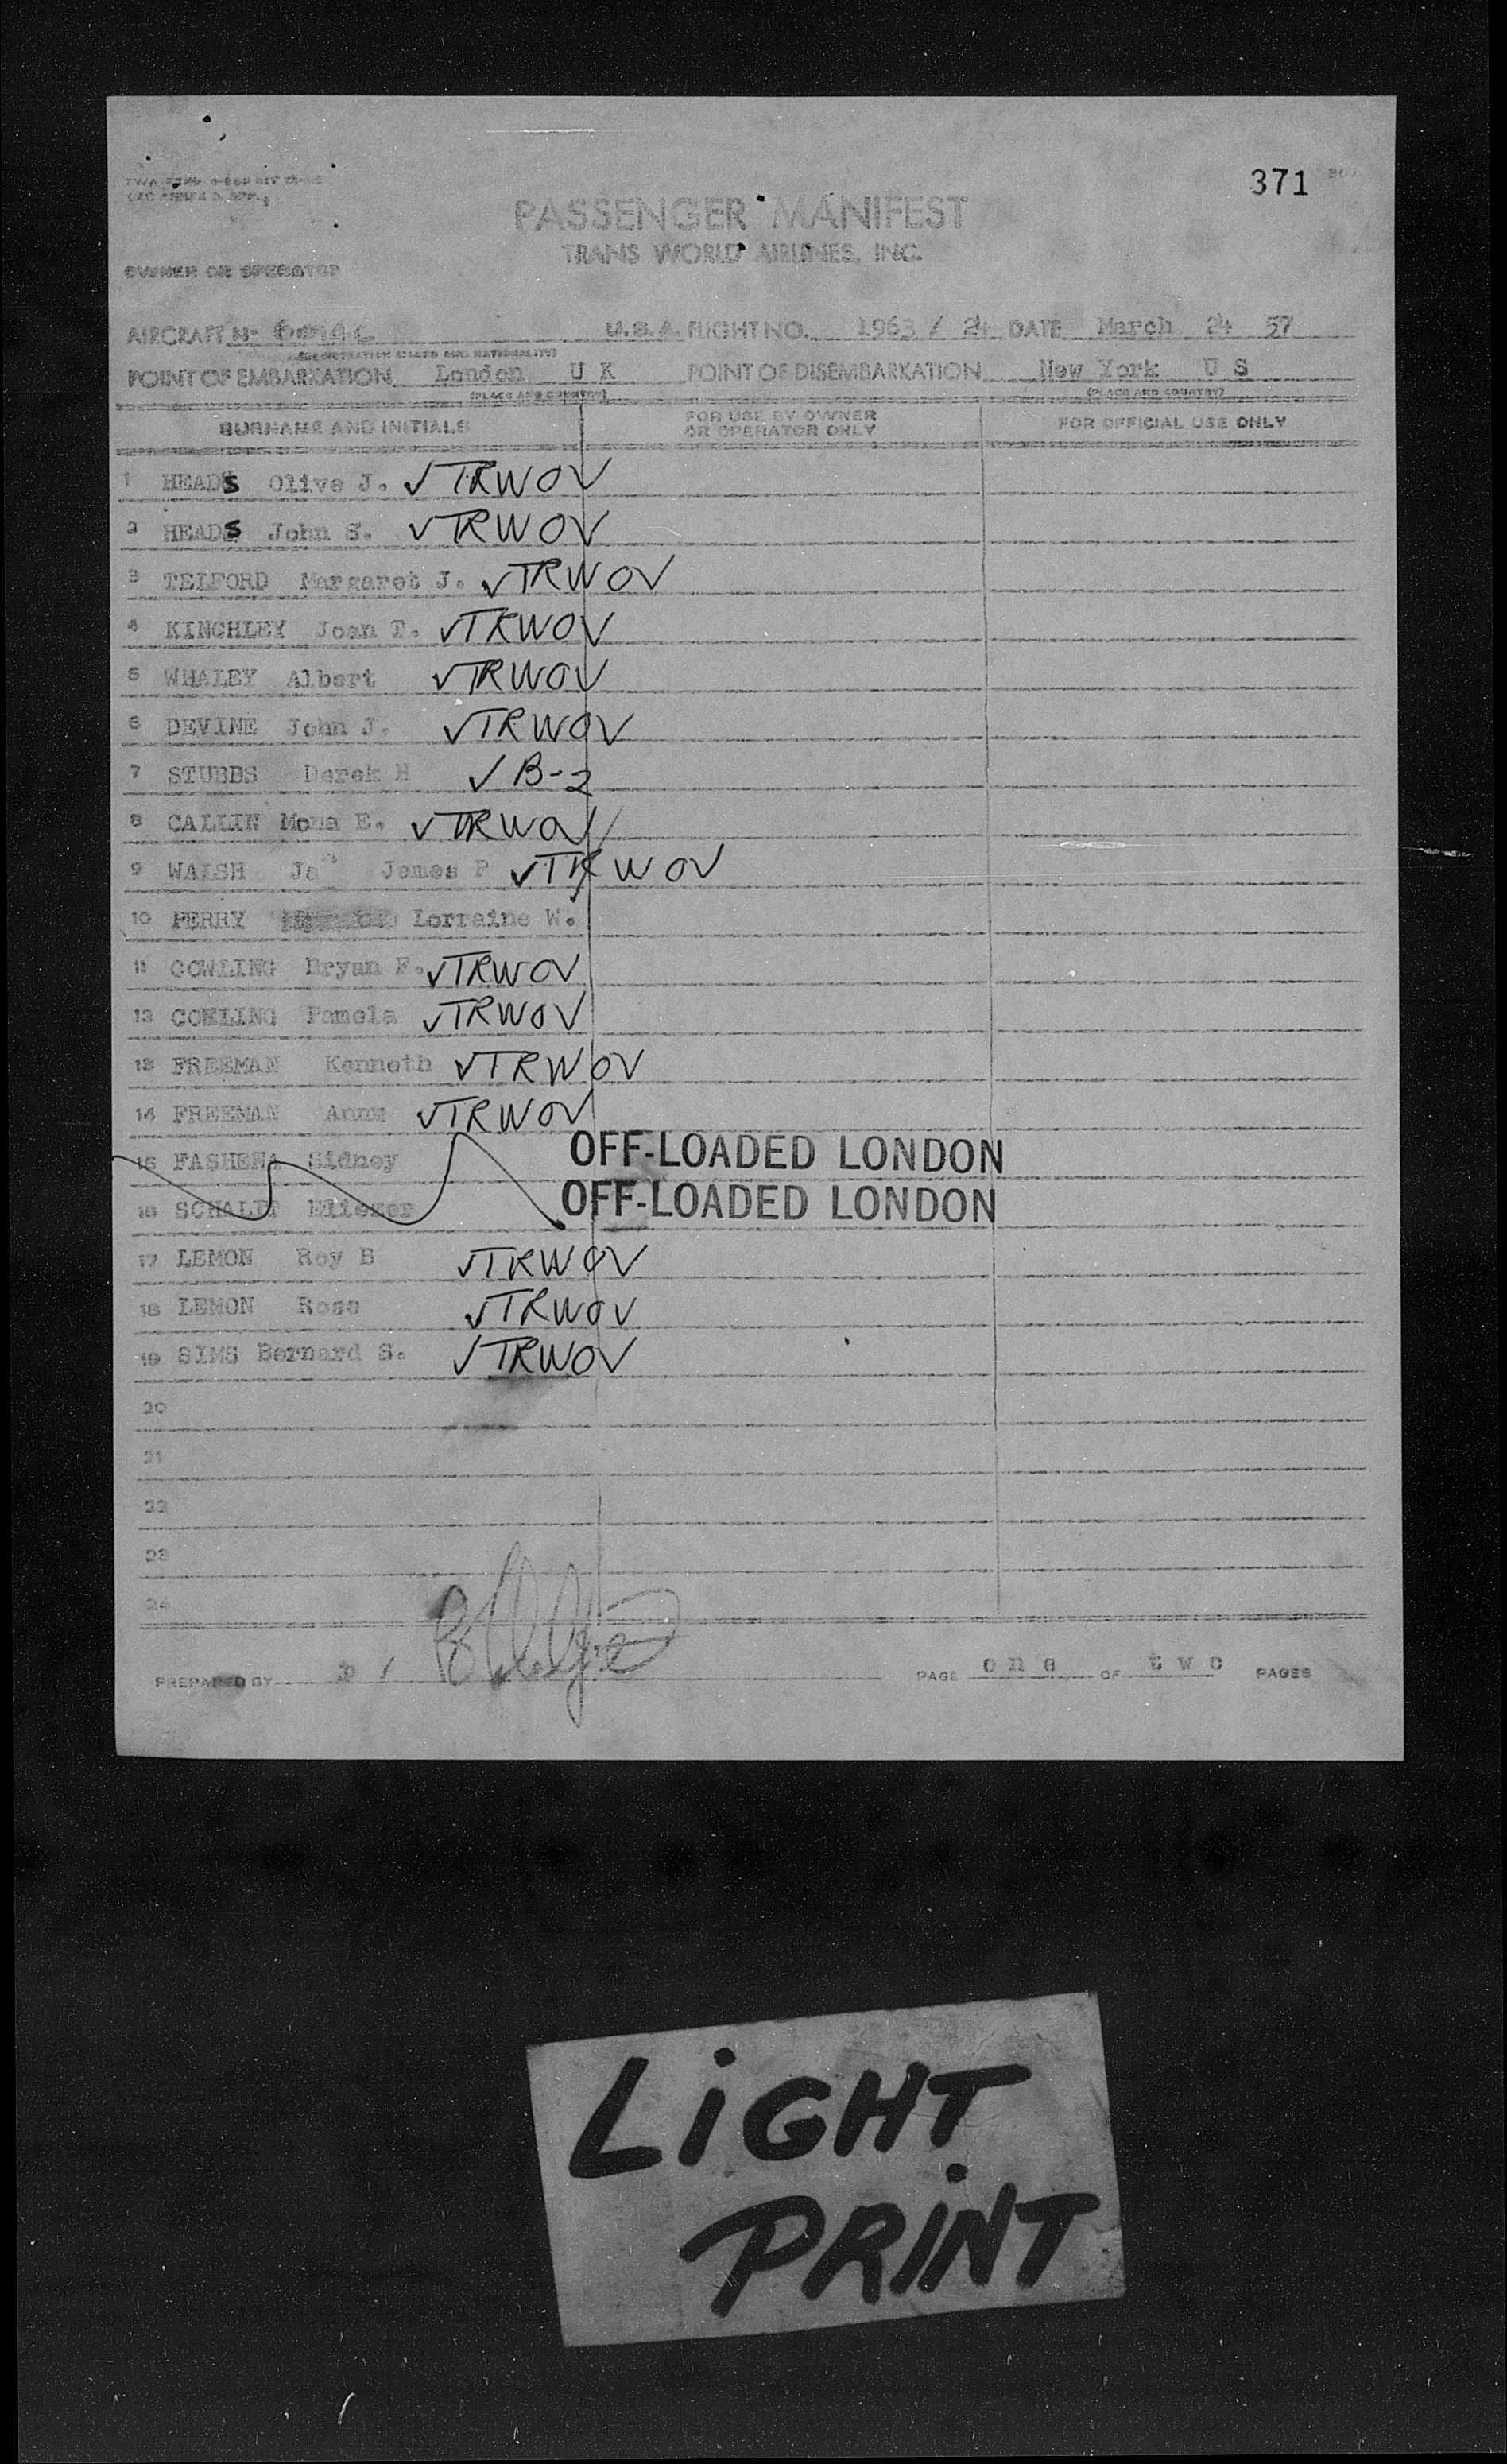 371
PASSENGER MANIFEST
TRANS WORLD AIRLINES, INC.
OWNER OR OPERATOR
AIRCRAFT No U.S.A. FLIGHT NO. 1963 / 24 DATE March 24 57
POINT OF EMBARKATION London U K POINT OF DISEMBARKATION New York U S
(PLACE AND COUNTRY) (PLACE AND COUNTRY)
SURNAME AND INITIALS FOR USE BY OWNER OR OPERATOR ONLY FOR OFFICIAL USE ONLY
1 HEADS Olive J. ✓ TRWOV
2 HEADS John S. ✓ TRWOV
3 TELFORD Margaret J. ✓ TRWOV
4 KINCHLEY Joan T. ✓ TRWOV
5 WHALEY Albert ✓ TRWOV
6 DEVINE John J. ✓ TRWOV
7 STUBBS Derek H ✓ B-2
8 CALLIN Mona E. ✓ TRWOV
9 WALSH Ja James P ✓ TRWOV
10 PERRY Lorraine W.
11 COWLING Bryan F. ✓ TRWOV
12 COWLING Pamela ✓ TRWOV
13 FREEMAN Kenneth ✓ TRWOV
14 FREEMAN Anne ✓ TRWOV
15 FASHENA Sidney OFF-LOADED LONDON
16 SCHALIT Eliezer OFF-LOADED LONDON
17 LEMON Roy B ✓ TRWOV
18 LEMON Rose ✓ TRWOV
19 SIMS Bernard S. ✓ TRWOV
20
21
22
23
24
PREPARED BY p / PAGE one OF two PAGES
LiGHT
PRiNT